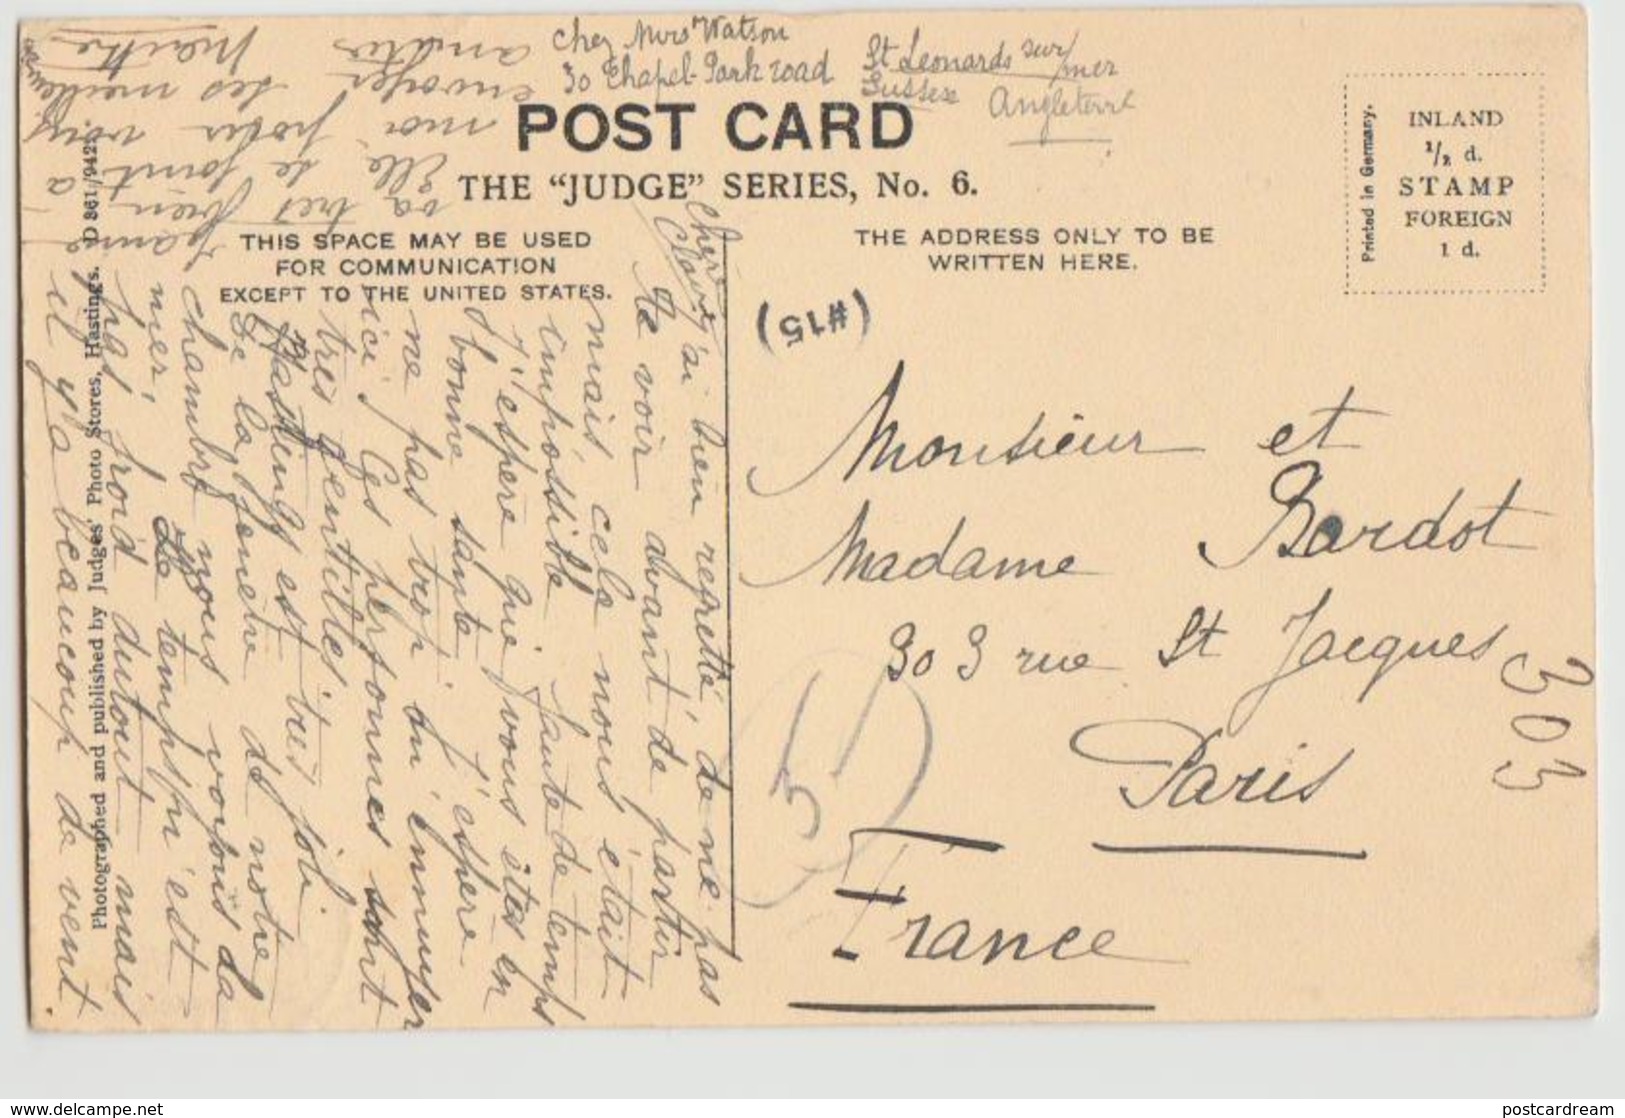 chez Mrs Watson
30 Chapel-Park road
St Leonards sur mer
Sussex
Angleterre
POST CARD
THE "JUDGE" SERIES, No. 6.
THIS SPACE MAY BE USED
FOR COMMUNICATION
EXCEPT TO THE UNITED STATES.
THE ADDRESS ONLY TO BE
WRITTEN HERE.
Printed in Germany.
INLAND
½ d.
STAMP
FOREIGN
1 d.
(#15)
Monsieur et
Madame Bardot
303 rue St Jacques
Paris
France
303
Photographed and published by Judges' Photo Stores, Hastings. D 861/942
j'ai bien regretté de ne pas
te voir avant de partir
mais cela nous était
impossible faute de temps
j'espère que vous êtes en
bonne santé j'espère
ne pas trop m'ennuyer
ici, les personnes sont
très gentilles
Hastings est très joli.
De la fenêtre de notre
chambre nous voyons la
mer, le temps n'est
pas froid du tout mais
il y a beaucoup de vent
Jeanne
va très bien
Elle se joint à
moi pour vous
envoyer les
amitiés
www.delcampe.net
postcardream